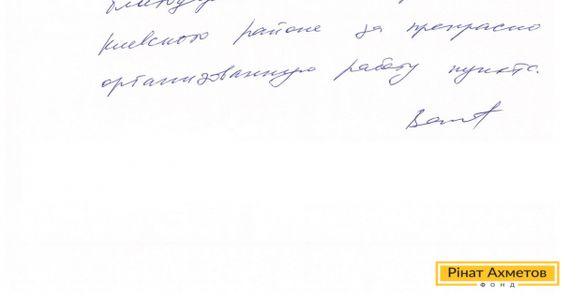 Киевского районе за прекрасно
организованную работу пункта.
Рінат Ахметов
ФОНД